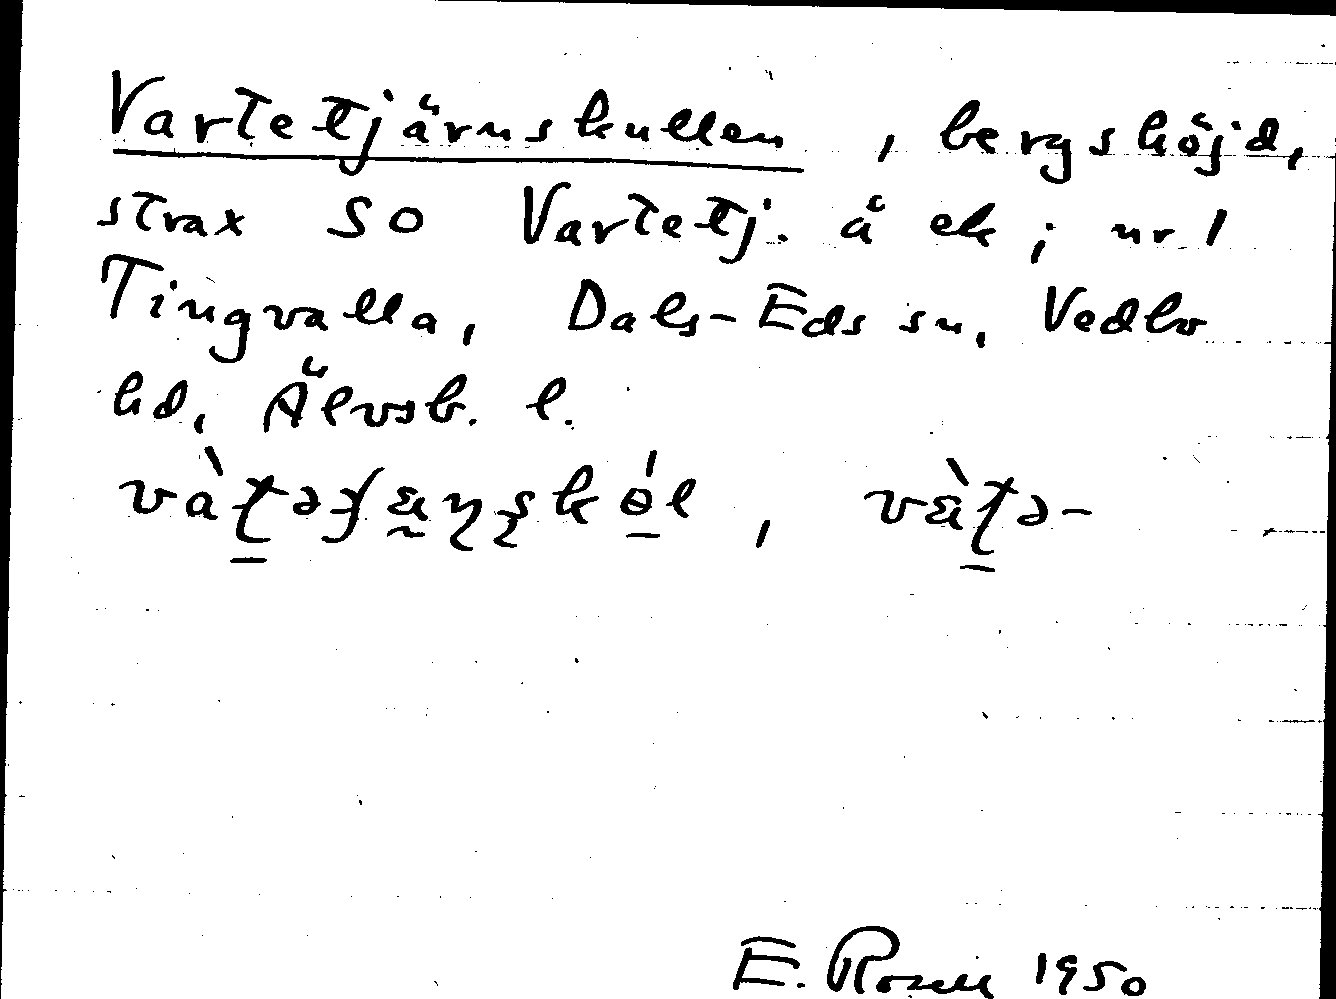 Vartetjärnskullen, bergshöjd,
strax SO Vartetj. å ek; nr 1
Tingvalla, Dals-Eds sn, Vedbo
hd, Älvsb. l.
E. Rosell 1950